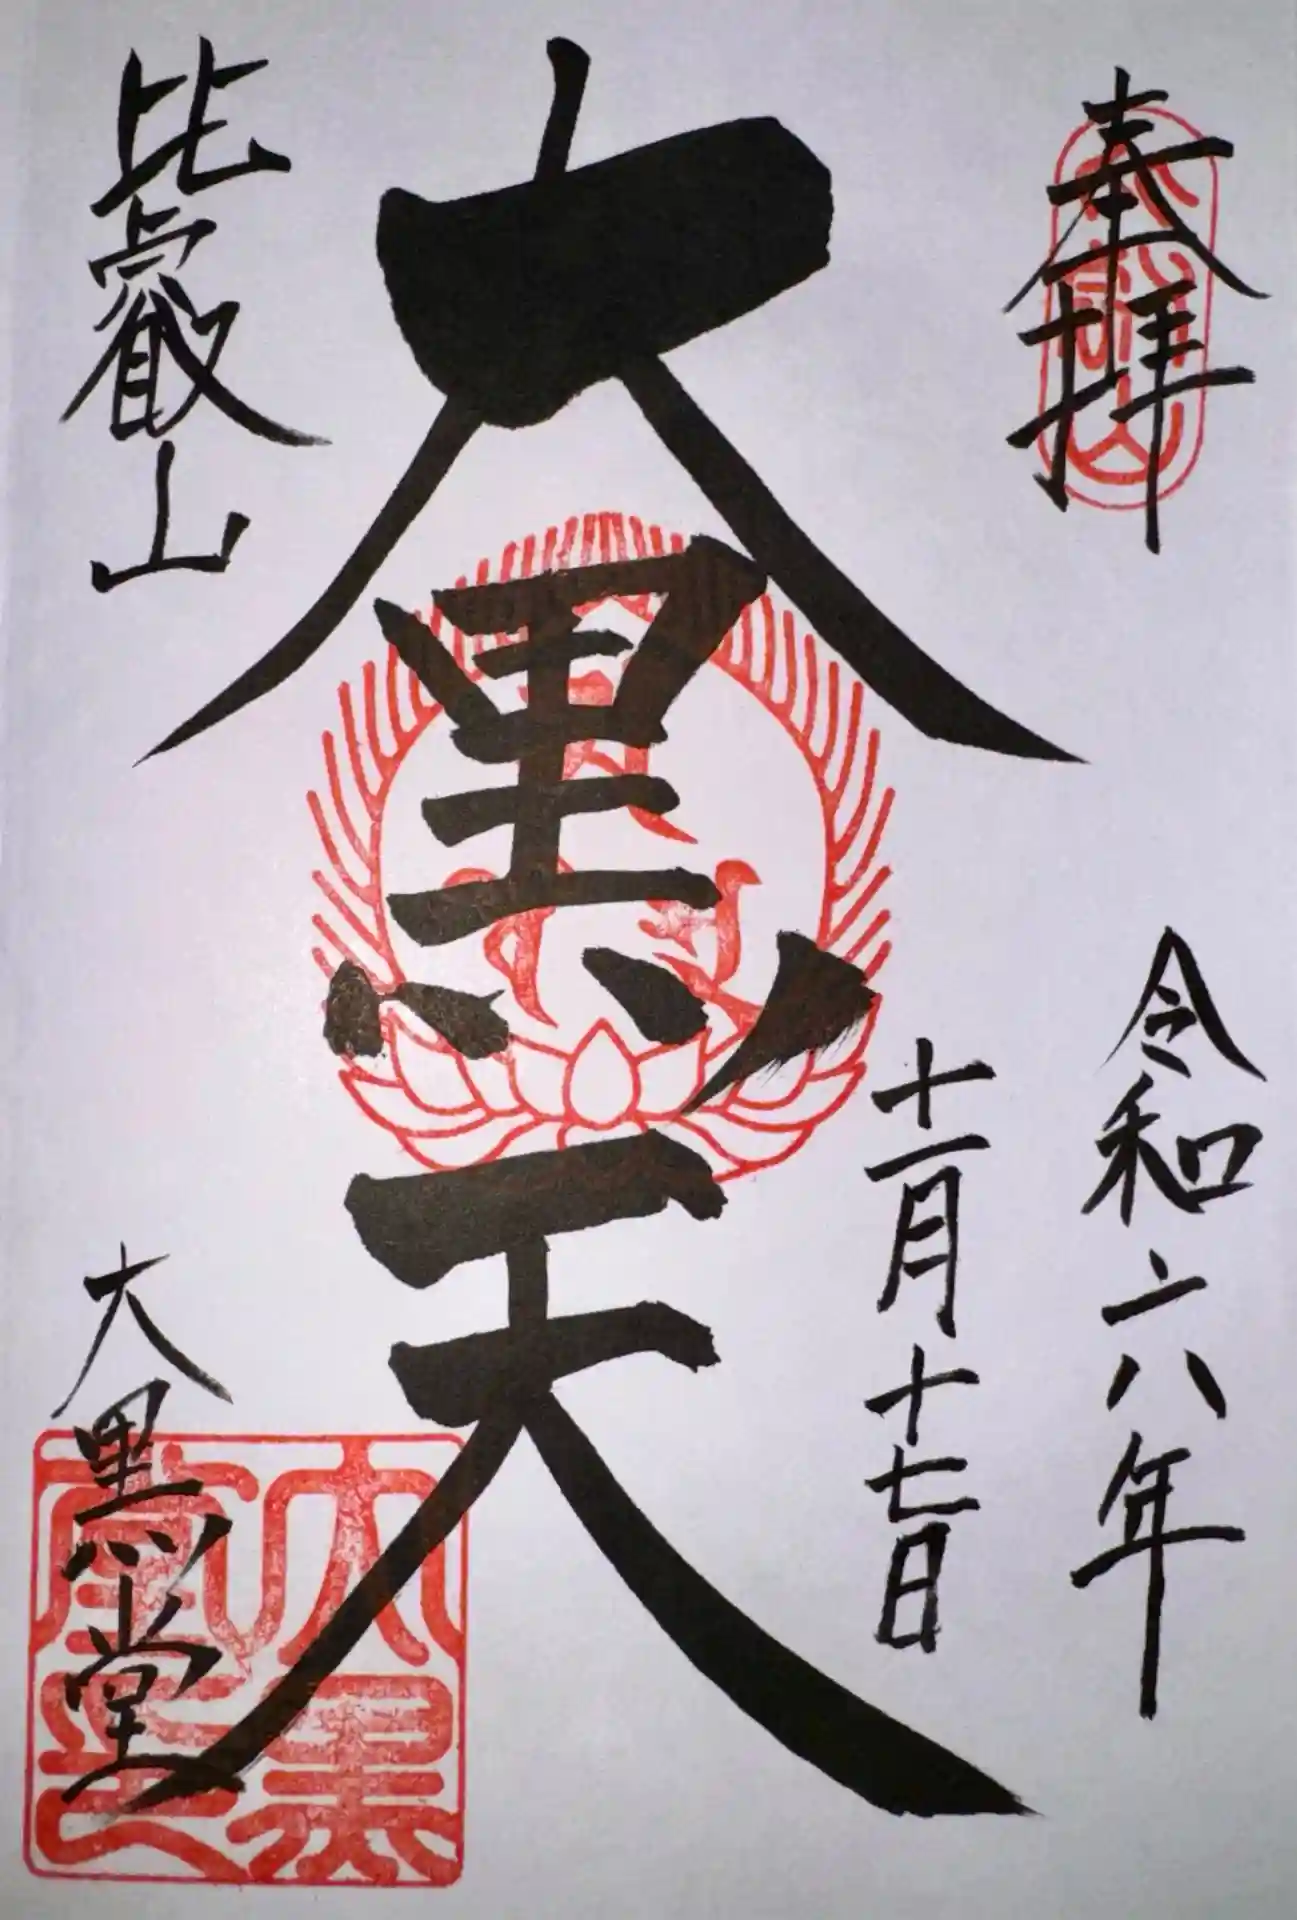 奉拝
令和六年
十一月十七日
大黒天
比叡山
大黒堂